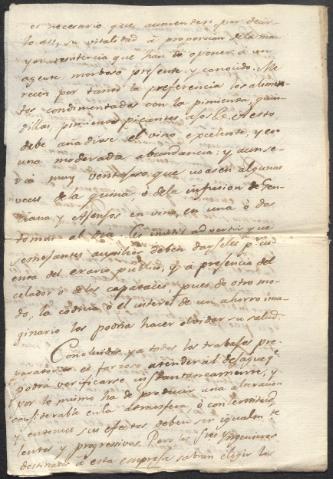 es necesario que aumenten, por decir
lo asi, su vitalidad á proporcion de la ma
yor resistencia que han de oponer á un
agente morboso presente y conocido. Me
recen por tanto la preferencia los alimen
tos condimentados con la pimienta, guin
dillas, pimientos picantes, ajos &c. A esto
debe añadirse el vino excelente, y en
una moderada abundancia; y aun se
rá muy ventajoso que usasen algunas
veces de la quina, ó de la infusion de Gen
ciana y Agenjos en vino, en una ó dos
tomas al dia. Es inutil advertir que
semejantes auxilios deben darseles por
cuenta del erario publico, y á presencia del
celador ó de los capataces, pues de otro mo
do, la codicia ó el interes de un ahorro ima
ginario les podria hacer olvidar su salud.
Concluidos ya todos los trabajos pre
paratorios es forzoso atender al desagüe, y
podrá verificarse instantaneamente; y
por lo mismo ha de producir una alteracion
considerable en la atmosfera, ó con lentitud
y entonces sus efectos deben ser igualmente
lentos y progresivos. Pero los Sres Ingenieros
destinados á esta empresa sabrán elegir los